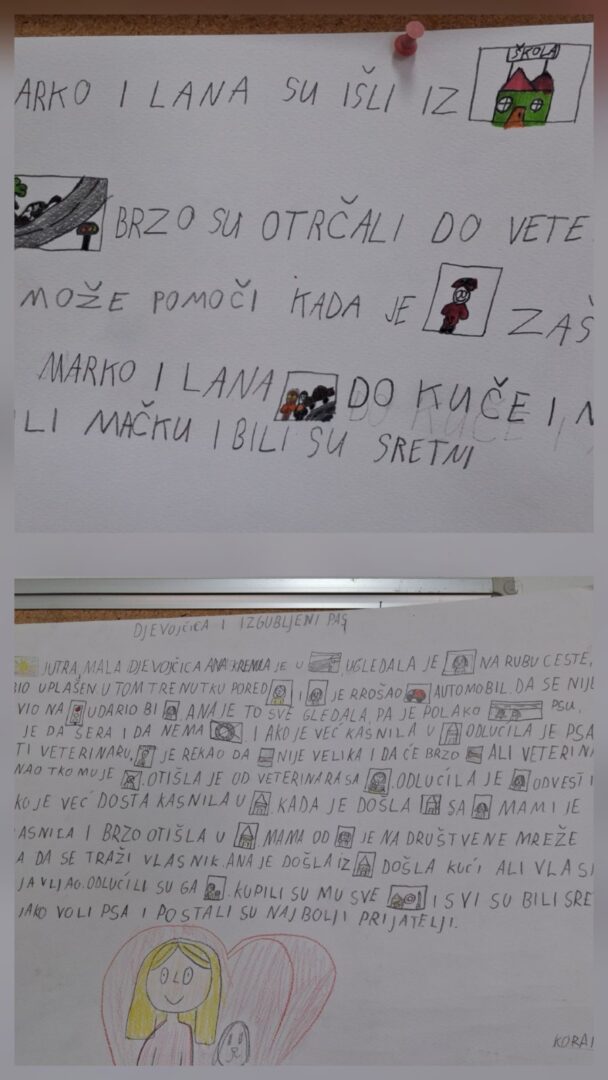 ARKO I LANA SU IŠLI IZ ŠKOLA
BRZO SU OTRČALI DO VETE
MOŽE POMOČI KADA JE ZAŠ
MARKO I LANA DO KUČE I
LI MAČKU I BILI SU SRETNI
DJEVOJČICA I IZGUBLJENI PAS
JUTRA, MALA DJEVOJČICA ANA KRENULA JE U UGLEDALA JE NA RUBU CESTE,
BIO UPLAŠEN. U TOM TRENUTKU PORED I JE PROŠAO AUTOMOBIL. DA SE NIJE
VIO NA UDARIO BI ANA JE TO SVE GLEDALA, PA JE POLAKO PSU,
JE DA ŠERA I DA NEMA I AKO JE VEĆ KASNILA U ODLUČILA JE PSA
TI VETERINARU, JE REKAO DA NIJE VELIKA I DA ĆE BRZO ALI VETERINA
NAO TKO MU JE OTIŠLA JE OD VETERINARA SA ODLUČILA JE ODVESTI
KO JE VEĆ DOSTA KASNILA U KADA JE DOŠLA SA MAMI JE
ASNILA I BRZO OTIŠLA U MAMA OD JE NA DRUŠTVENE MREŽE
A DA SE TRAŽI VLASNIK. ANA JE DOŠLA IZ DOŠLA KUĆI ALI VLAS
JAVLJAO. ODLUČILI SU GA KUPILI SU MU SVE I SVI SU BILI SRE
JAKO VOLI PSA I POSTALI SU NAJBOLJI PRIJATELJI.